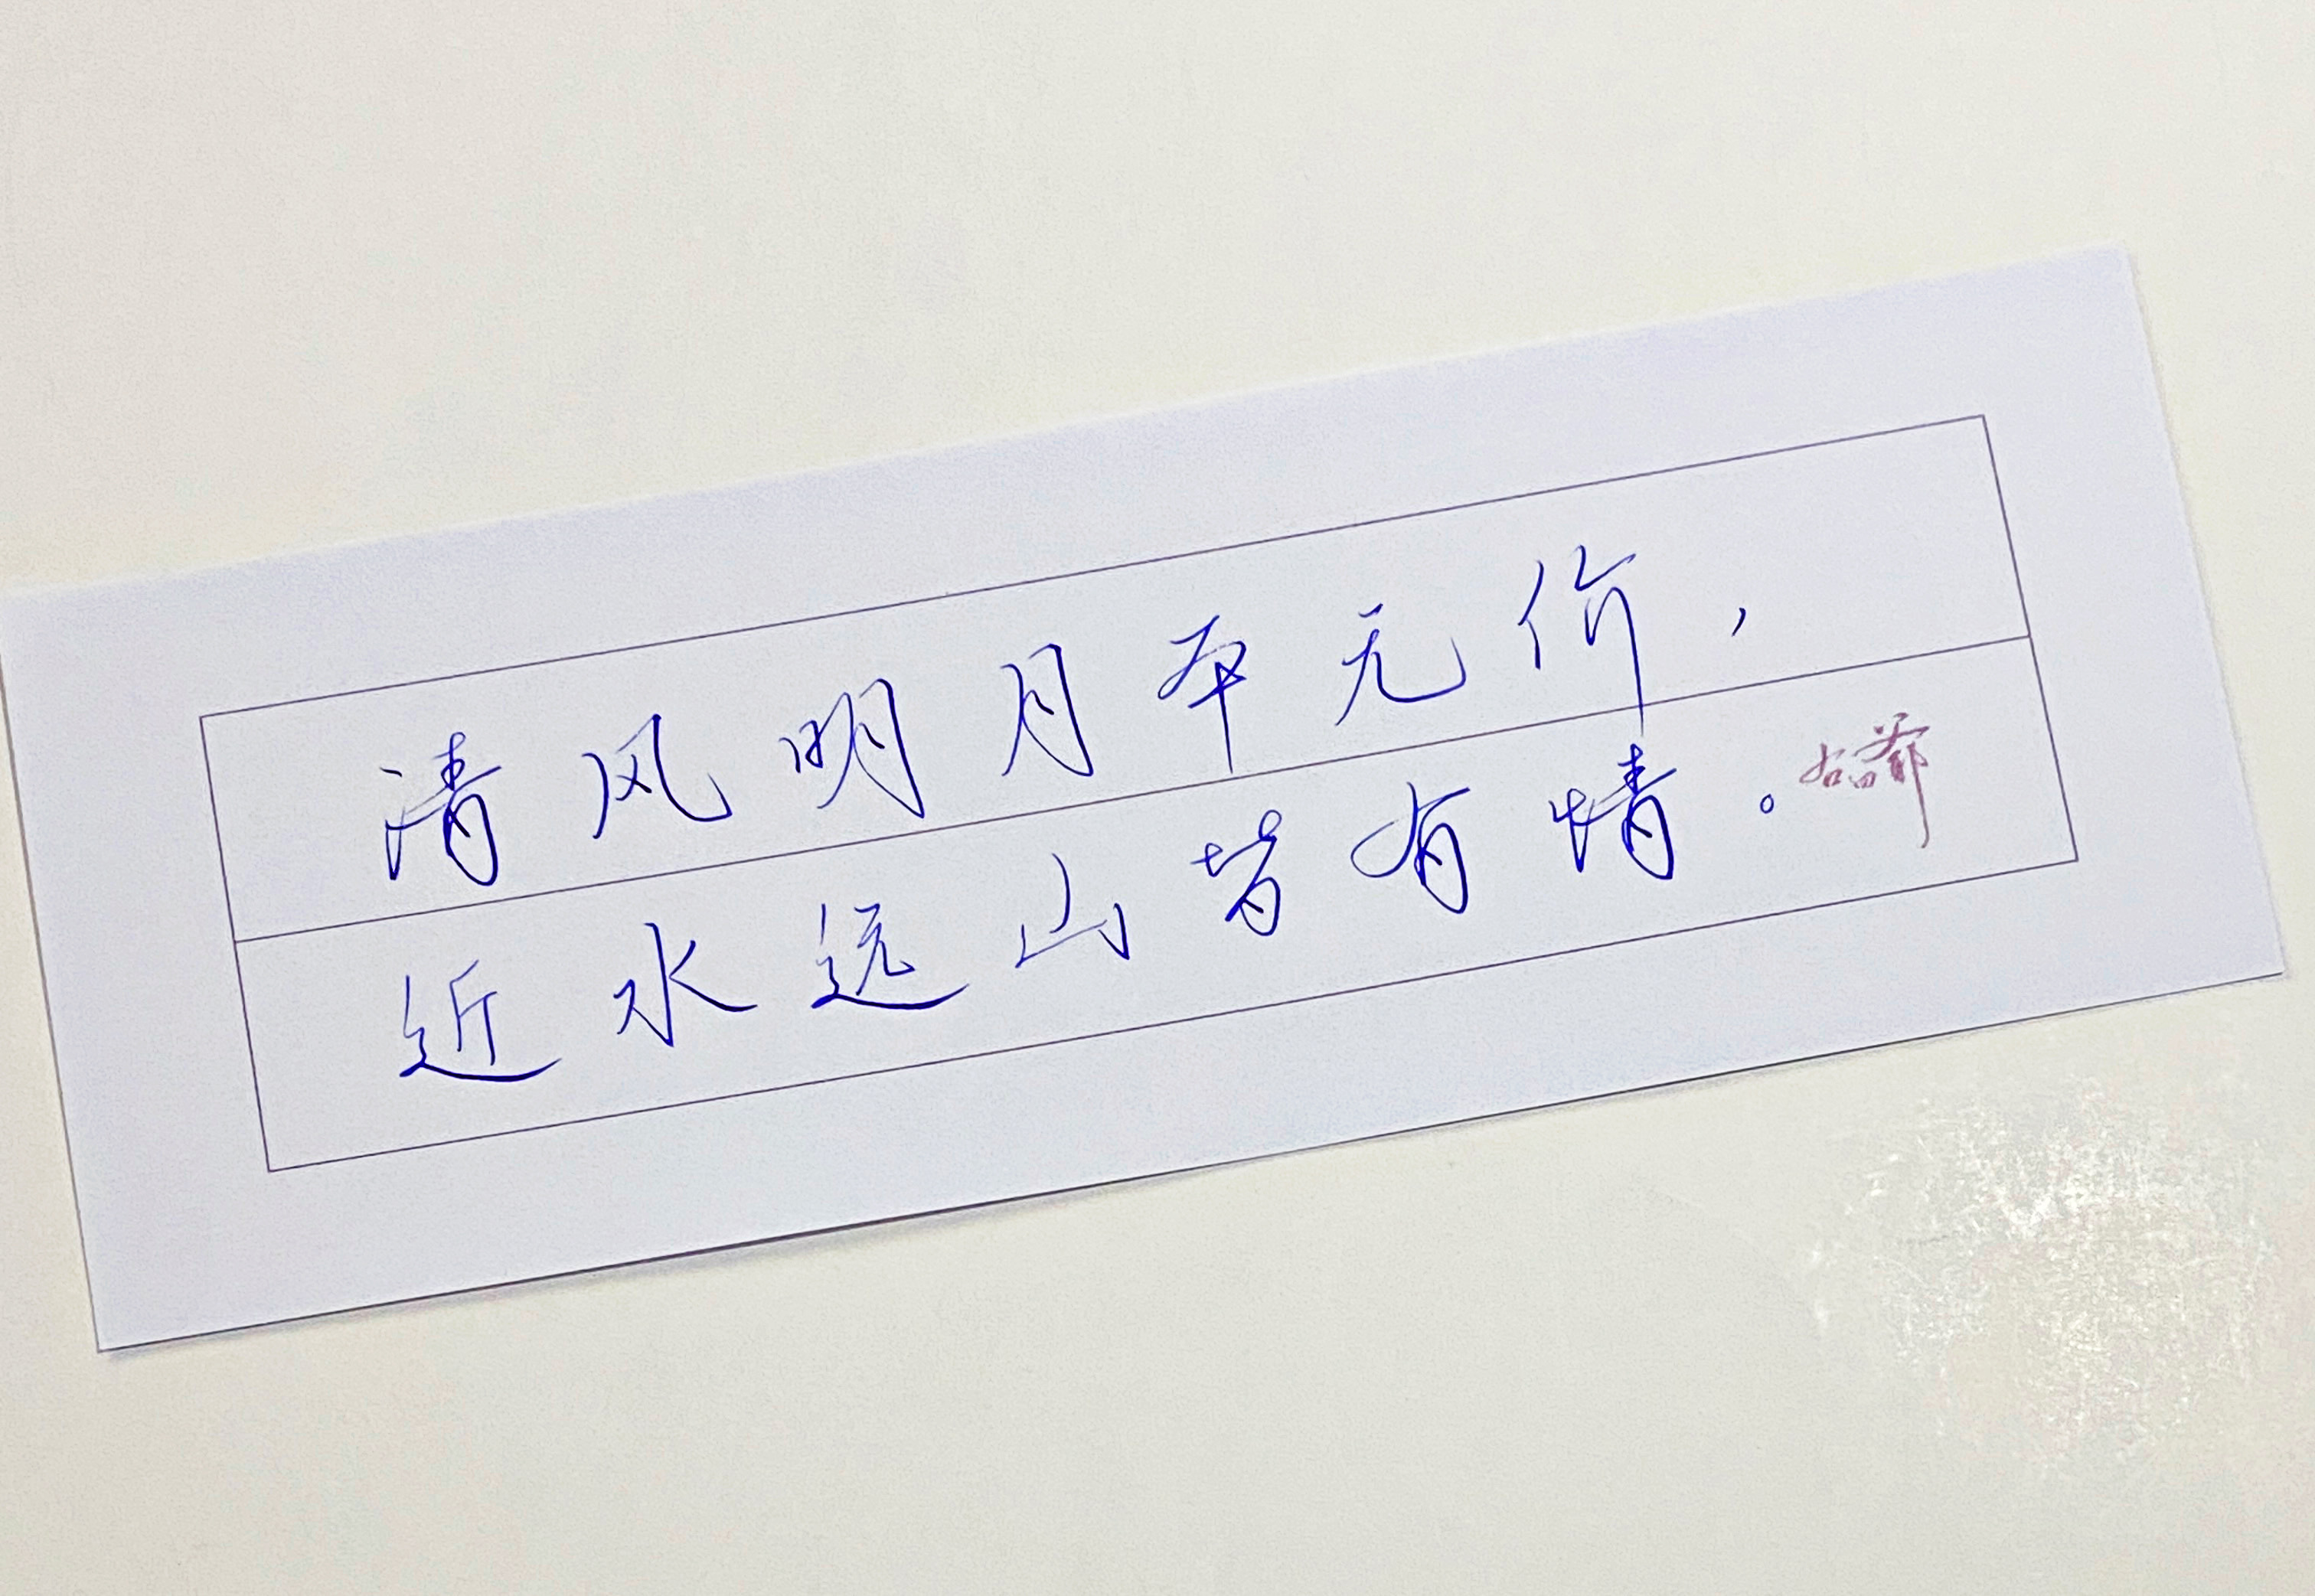 清风明月本无价，
近水远山皆有情。